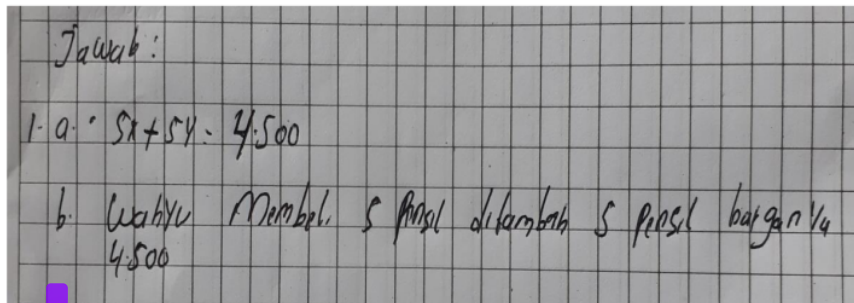 Jawab:
1. a. • 5x + 5y = 4.500
b. Wahyu Membeli 5 Pinsil ditambah 5 Pensil harganya
4.500